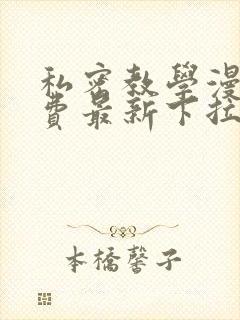 私密教學漫
費最新下拉
本橋馨子